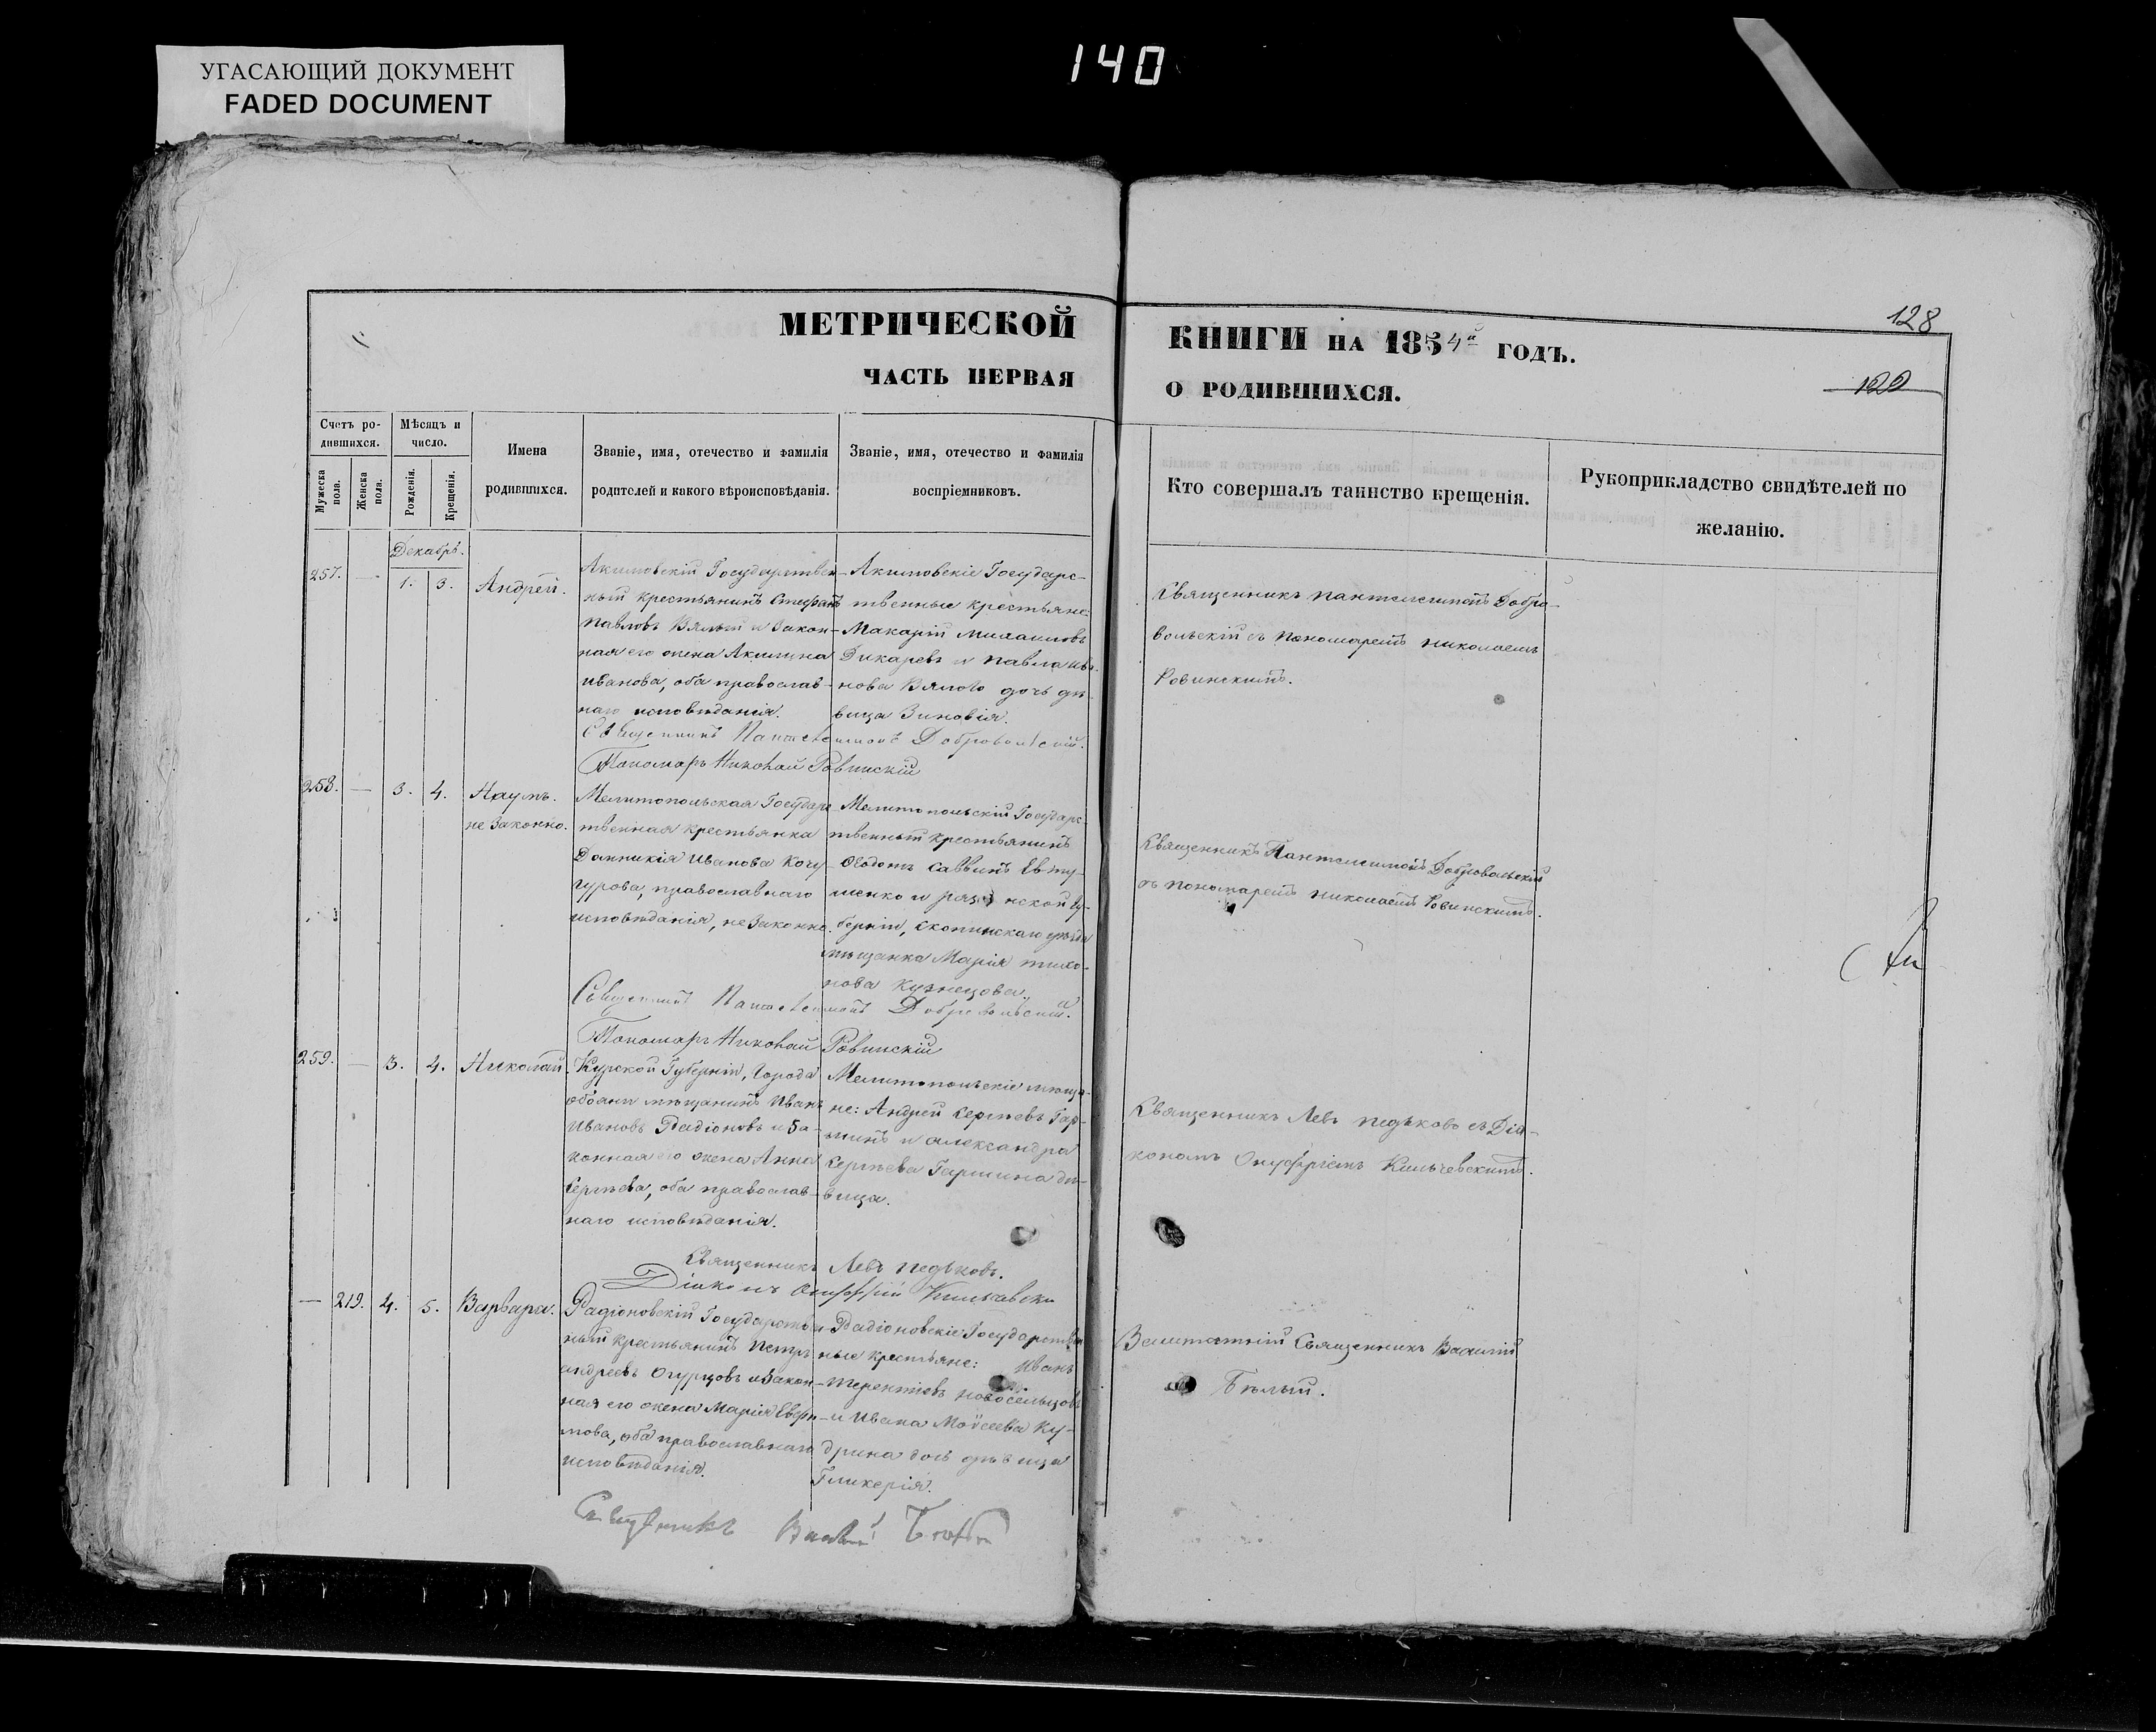 УГАСАЮЩИЙ ДОКУМЕНТ
FADED DOCUMENT
140
128
МЕТРИЧЕСКОЙ
КНИГИ НА 1854й ГОДЪ.
100
ЧАСТЬ ПЕРВАЯ
О РОДИВШИХСЯ.
Счетъ ро-
дившихся.
Мужеска
пола.
Женска
пола.
Мѣсяцъ и
число.
Рожденія.
Крещенія.
Имена
родившихся.
Званіе, имя, отечество и фамилія
родителей и какого вѣроисповѣданія.
Званіе, имя, отечество и фамилія
воспріемниковъ.
Кто совершалъ таинство крещенія.
Рукоприкладство свидѣтелей по
желанію.
Декабрь.
257.
—
1.
3.
Андрей.
Акимовскій Государствен-
ный крестьянинъ Стефанъ
Павловъ Вялый и закон-
ная его жена Акилина
Иванова, оба православ-
наго исповѣданія.
Акимовскіе Государс-
твенные крестьяне:
Макарій Михаиловъ
Дикаревъ и Павла Ива-
нова Вялого дочь дѣ-
вица Зиновія.
Священникъ Пантелеимонъ Добро-
вольскій съ пономаремъ Николаемъ
Ровинскимъ.
Священникъ Пантелеимонъ Добровольскій.
Пономарь Николай Ровинскій
258.
—
3.
4.
Наумъ.
не законно.
Мелитопольская Государс
твенная крестьянка
Домникія Иванова Кочу-
гурова, православнаго
исповѣданія, не законно.
Мелитопольскій Государс-
твенный крестьянинъ
Ѳеодотъ Саввинъ Евту-
шенко и нской Гу-
берніи, Скопинскаго уѣзда
мѣщанка Марія Тихо-
нова Кузнецова.
Священникъ Пантелеимонъ Добровольскій
съ пономаремъ Николаемъ Ровинскимъ.
Священникъ Пантелеимонъ Добровольскій.
Пономарь Николай Ровинскій
259.
—
3.
4.
Николай.
Курской Губерніи, Города
Обояни мѣщанинъ Иванъ
Ивановъ Радіоновъ и За-
конная его жена Анна
Сергѣева, оба православ-
наго исповѣданія.
Мелитопольскіе мѣща-
не: Андрей Сергѣевъ Гар-
шинъ и Александра
Сергѣева Гаршина дѣ-
вица.
Священникъ Левъ Педьковъ съ Діа-
кономъ Онуфріемъ Кильчевскимъ.
Священникъ Левъ Педьковъ.
Діаконъ
—
219.
4.
5.
Варвара.
Радіоновскій Государствен-
ный крестьянинъ Петръ
Андреевъ Огурцовъ и Закон-
ная его жена Марія Евфи-
мова, оба православнаго
исповѣданія.
Радіоновскіе Государствен
ные крестьяне: Иванъ
Терентіевъ Новосельцовъ
и Ивана Моѵсеева Ку-
дрина дочь дѣвица
Гликерія.
Заштатный Священникъ Василій
Бѣлый.
Священникъ Василій